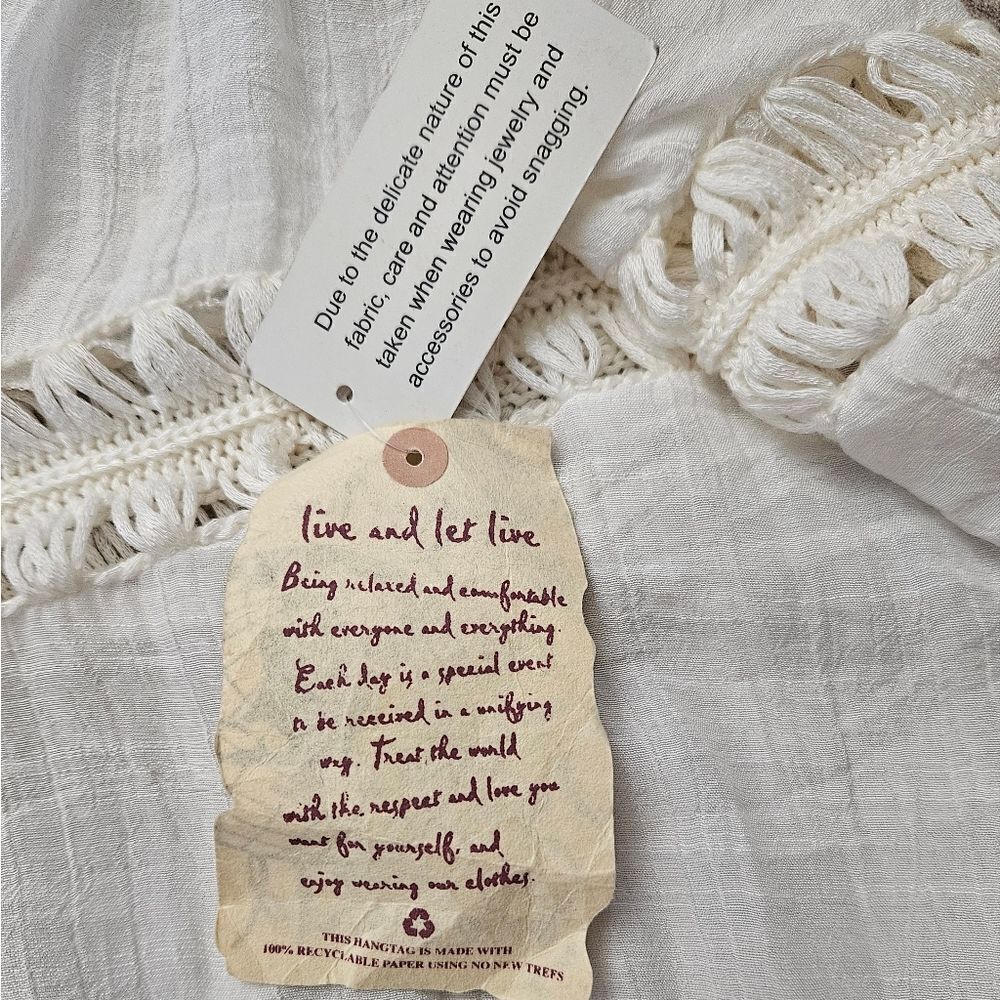 Due to the delicate nature of this
fabric, care and attention must be
taken when wearing jewelry and
accessories to avoid snagging.
live and let live
Being relaxed and comfortable
with everyone and everything.
Each day is a special event
to be received in a unifying
way. Treat the world
with the respect and love you
want for yourself, and
enjoy wearing our clothes.
THIS HANGTAG IS MADE WITH
100% RECYCLABLE PAPER USING NO NEW TREES